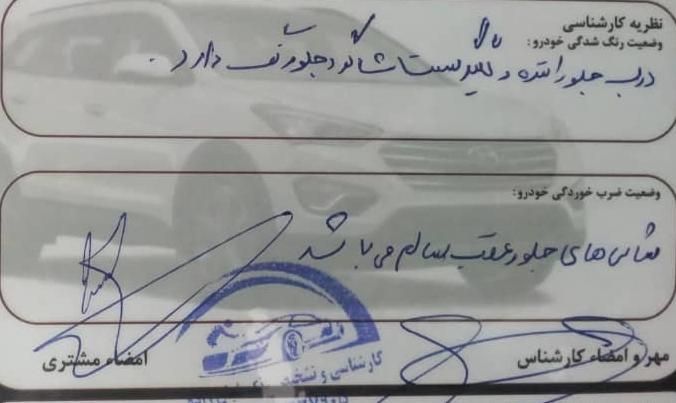 نظریه کارشناسی
وضعیت رنگ شدگی خودرو:
درب جلو راننده و گلگیر سمت شاگرد جلو رنگ دارد.
وضعیت ضرب خوردگی خودرو:
شاسی های جلو و عقب سالم می باشد
مهر و امضاء کارشناس
امضاء مشتری
کارشناسی و تشخیص